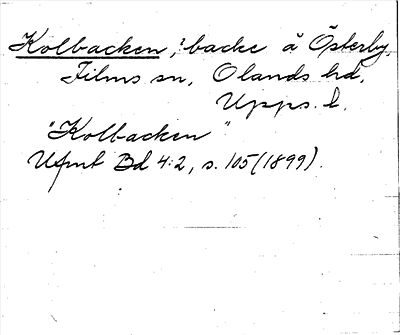 Kolbacken, ? backe å Österby,
Films sn, Olands hd,
Upps. l.
"Kolbacken"
Ufmt Bd 4:2, s. 105 (1899).